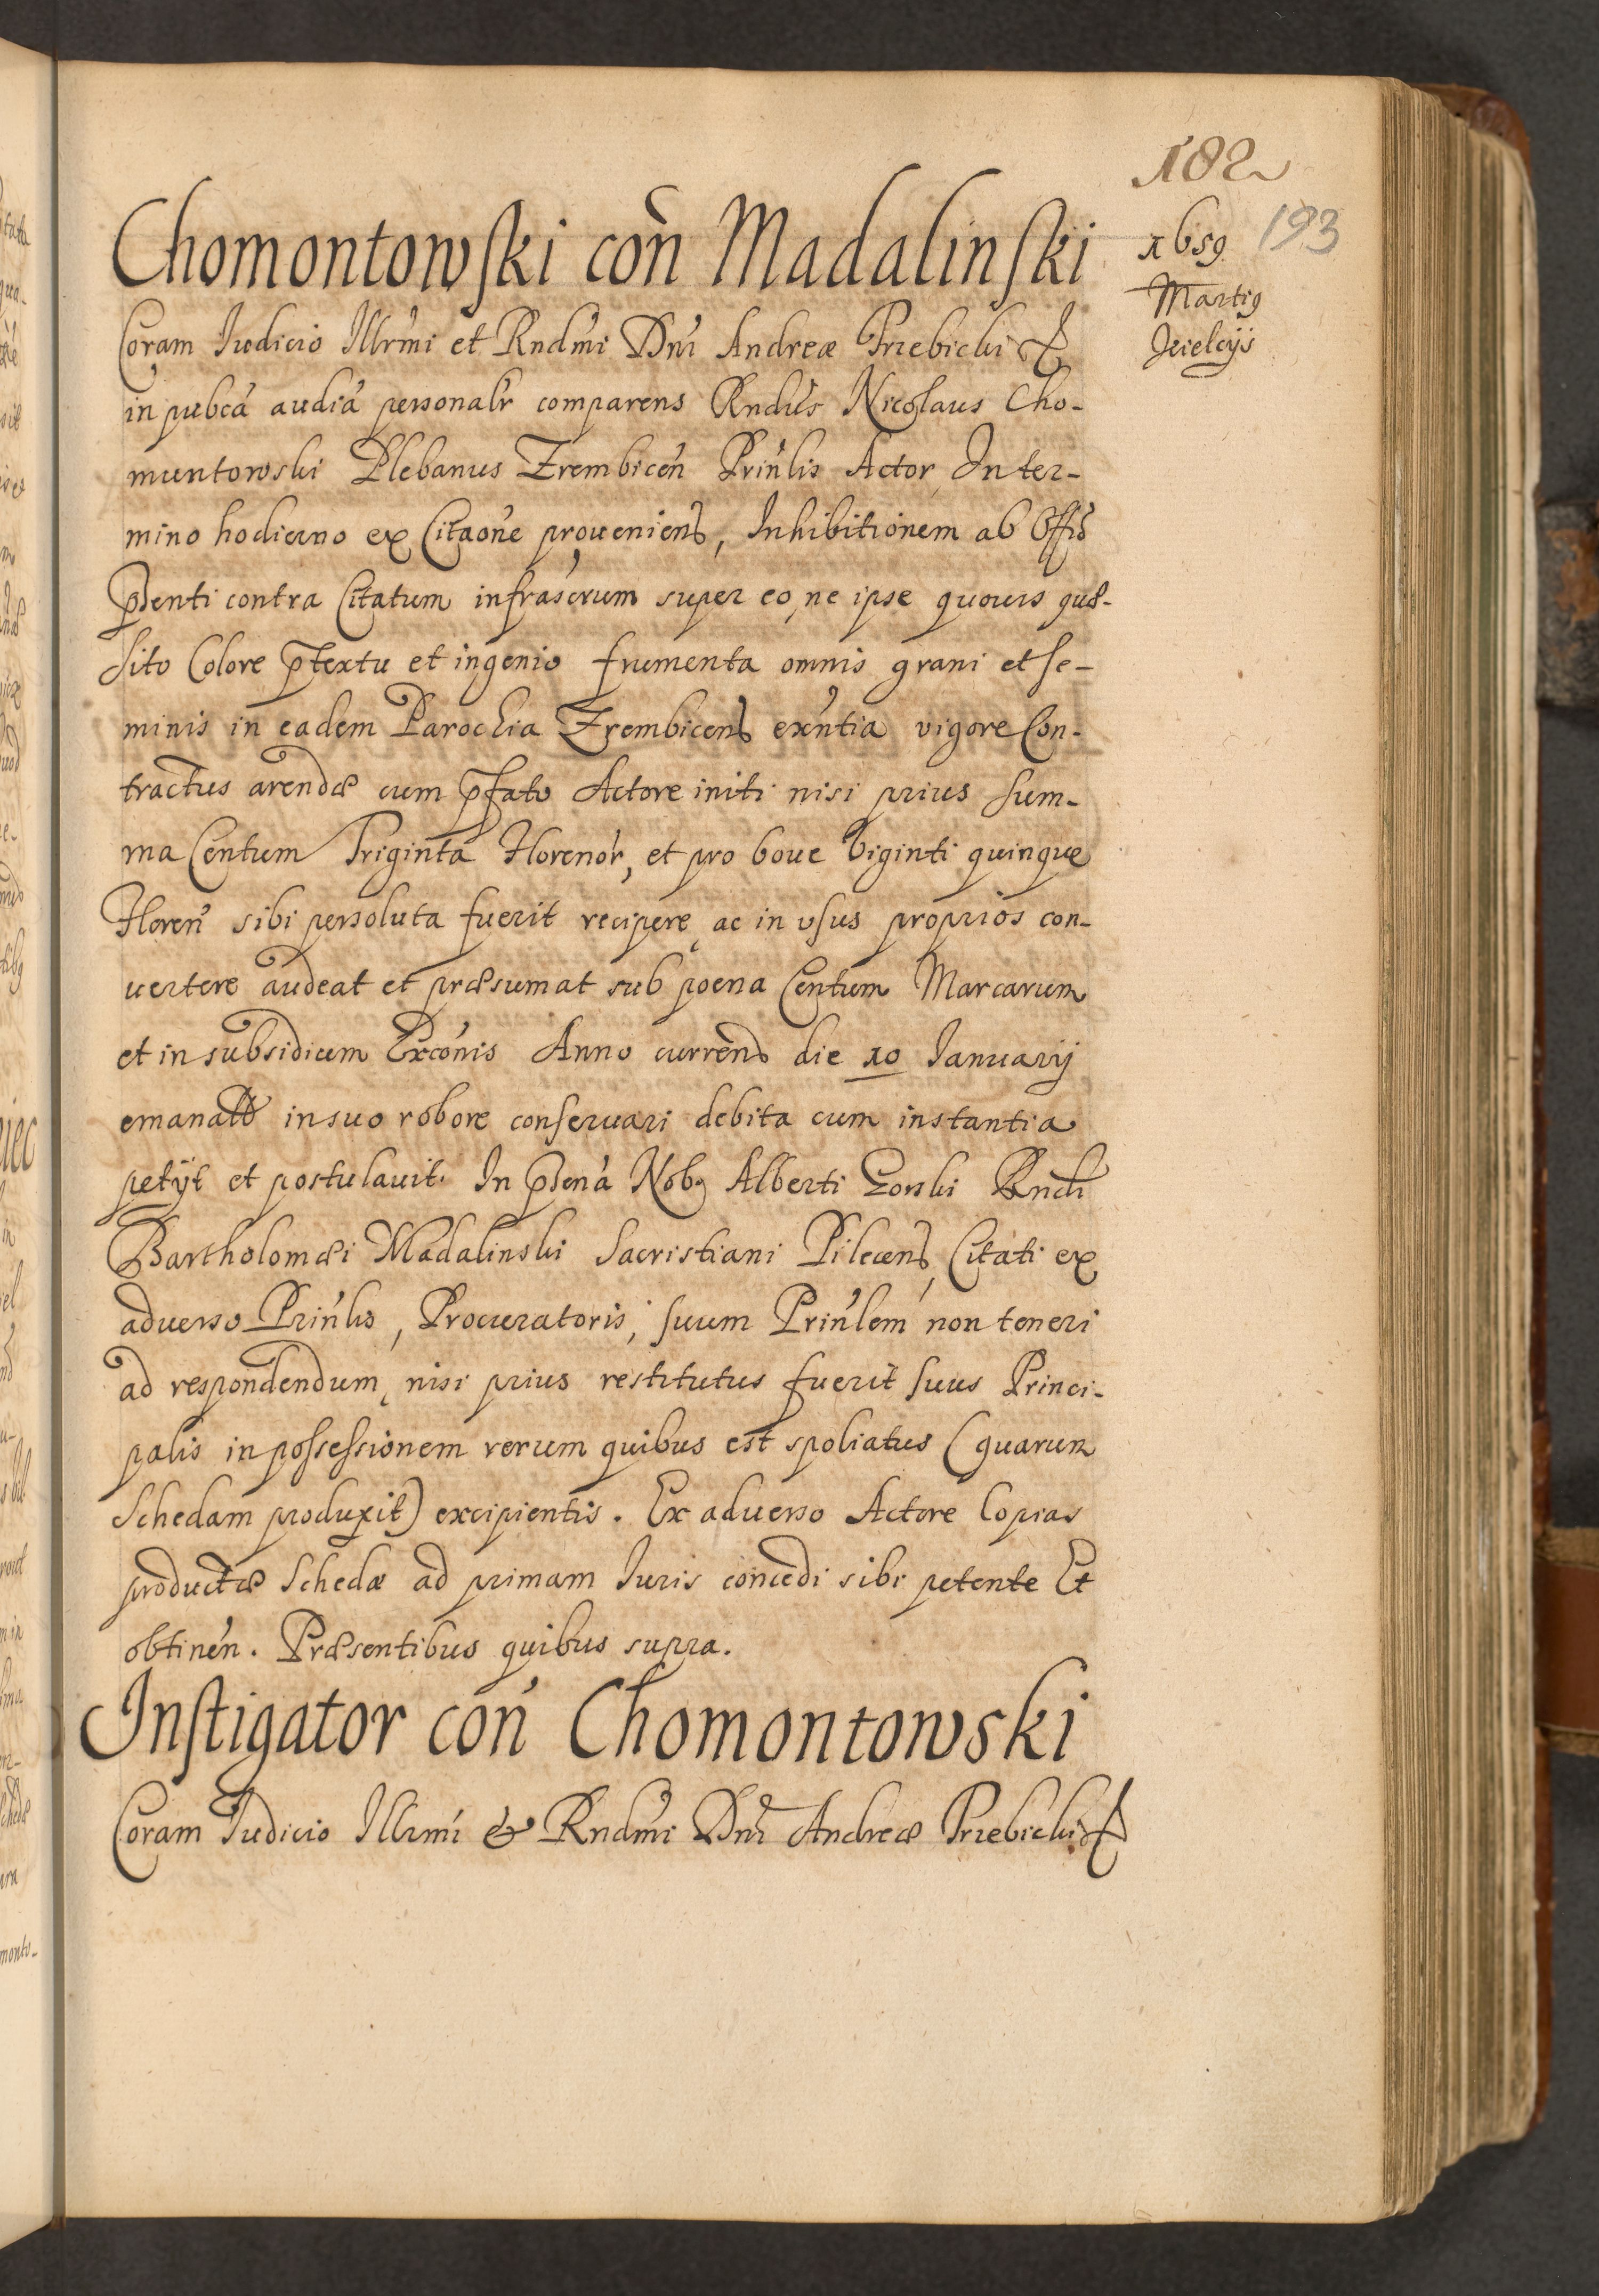 182
193
1659
Martij
Kielcijs
Chomontowski coñ Madalinski
Coram Iudicio Illr̃mi et Rnd̃mi Dñi Andreæ Trzebicki &
in pub̃ca audĩa personalr̃ comparens Rnd̃us Nicolaus Cho-
muntowski Plebanus Zrembiceñ Prin̄lis Actor In ter-
mino hodierno ex Citaõne proueniens, Inhibitionem ab Offĩo
p̃senti contra Citatum infrascrum super eo, ne ipse quouis quæ-
sito Colore p̃textu et ingenio frumenta omnis grani et se-
minis in eadem Parochia Zrembicens exñtia vigore Con-
tractus arendæ cum p̃fato Actore initi nisi prius sum-
ma Centum Triginta Florenor̃, et pro boue Viginti quinque
Floreñ sibi persoluta fuerit recipere, ac in vsus proprios con-
uertere audeat et præsumat sub poena Centum Marcarum
et in subsidium Excõnis Anno currens die 10 Ianuarij
emanatæ in suo robore conseruari debita cum instantia
petijt et postulauit. In p̃sena Nob. Alberti Gorski Rndi
Bartholomæi Madalinski Sacristiani Pilecens, Citati ex
aduerso Prin̄lis, Procuratoris, suum Prin̄lem non teneri
ad respondendum, nisi prius restitutus fuerit suus Princi-
palis in possessionem rerum quibus est spoliatus (quarum
Schedam produxit) excipientis. Ex aduerso Actore Copias
productæ Schedæ ad primam Iuris concedi sibi petente Et
obtineñ. Præsentibus quibus supra.
Instigator coñ Chomontowski
Coram Iudicio Illr̃mi & Rnd̃mi Dñi Andreæ Trzebicki &